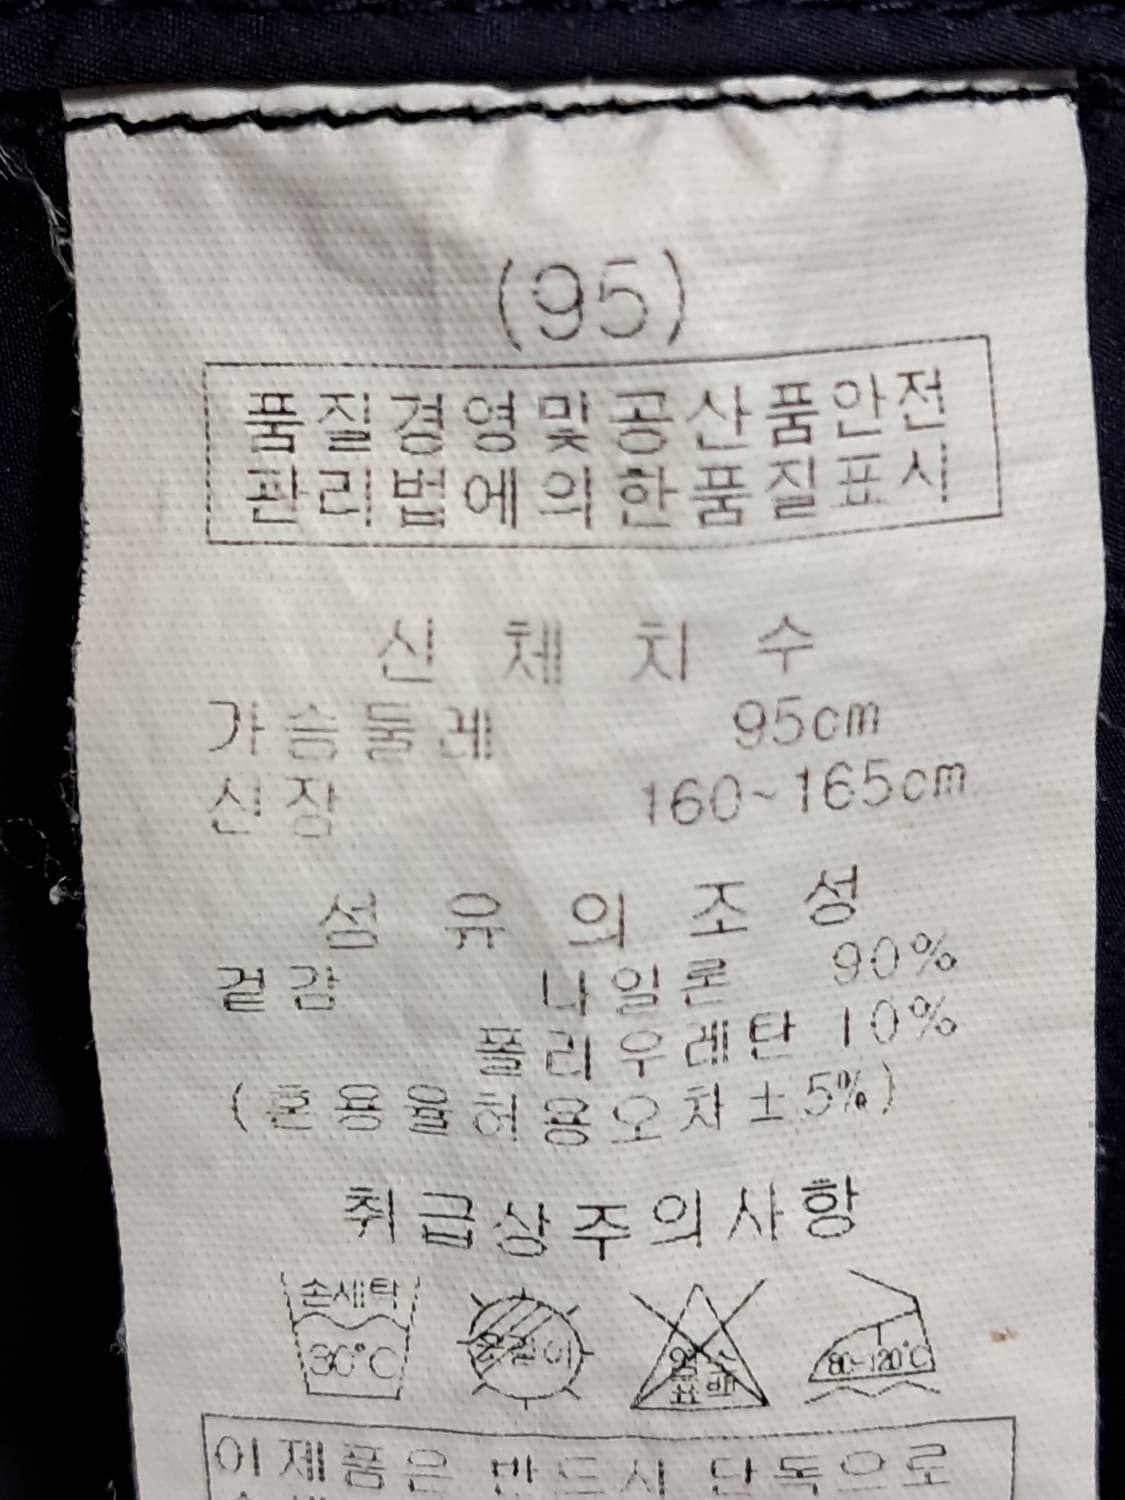 (95)
품질경영및공산품안전
관리법에의한품질표시
신체치수
가슴둘레 95cm
신장 160~165cm
섬유의조성
겉감 나일론 90%
폴리우레탄 10%
(혼용율허용오차±5%)
취급상주의사항
손세탁
30°C
옷걸이
염소
표백
80~120°C
이제품은 반드시 단독으로